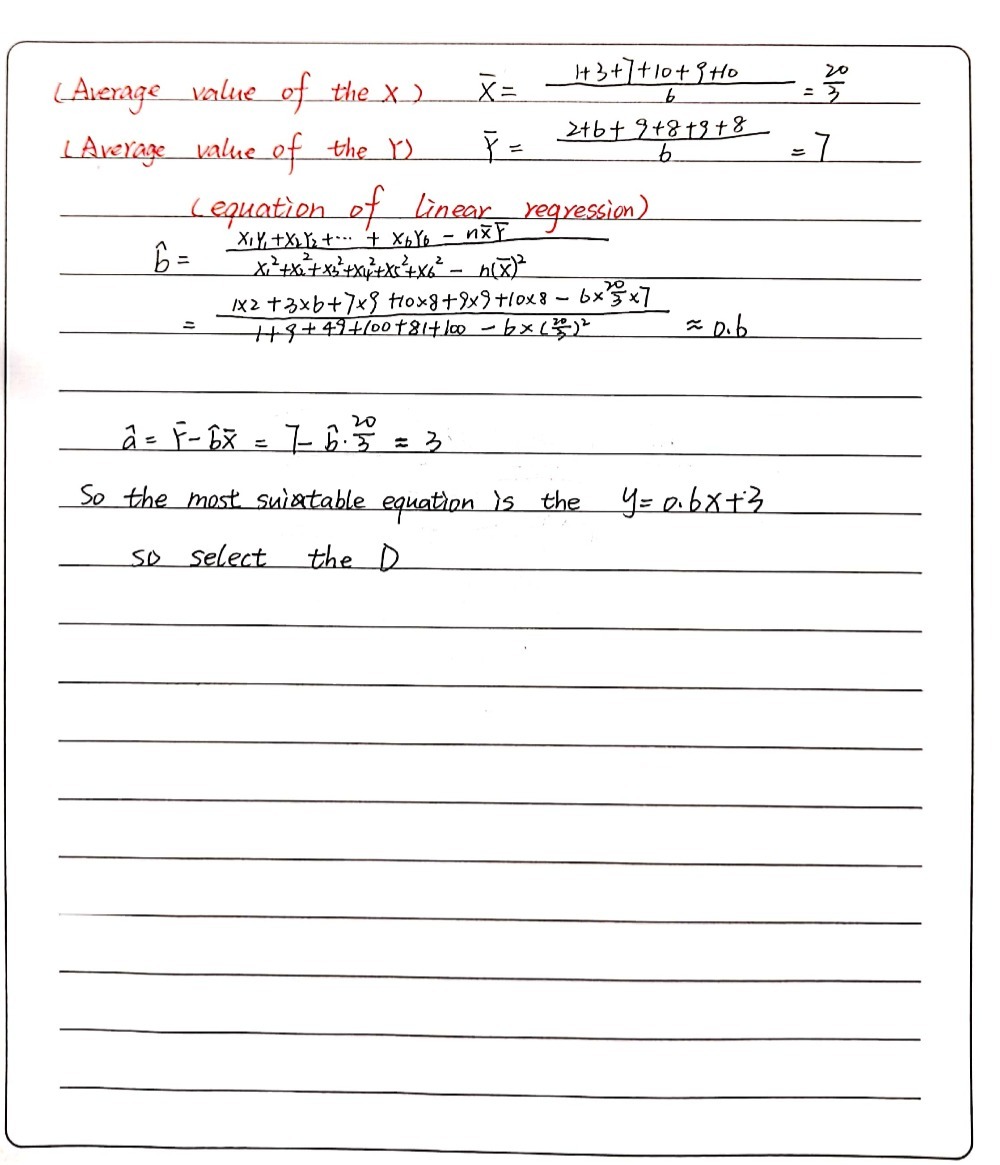 (Average value of the X) X̄ = (1+3+7+10+9+10)/6 = 20/3
(Average value of the Y) Ȳ = (2+6+9+8+9+8)/6 = 7
(equation of linear regression)
b̂ = (X₁Y₁+X₂Y₂+⋯ + X₆Y₆ − nX̄Ȳ)/(X₁²+X₂²+X₃²+X₄²+X₅²+X₆² − n(X̄)²)
= (1×2+3×6+7×9+10×8+9×9+10×8 − 6×20/3×7)/(1+9+49+100+81+100 − 6×(20/3)²) ≈ 0.6
â = Ȳ−b̂X̄ = 7−b̂·20/3 ≈ 3
So the most suiatable equation is the y=0.6x+3
so select the D